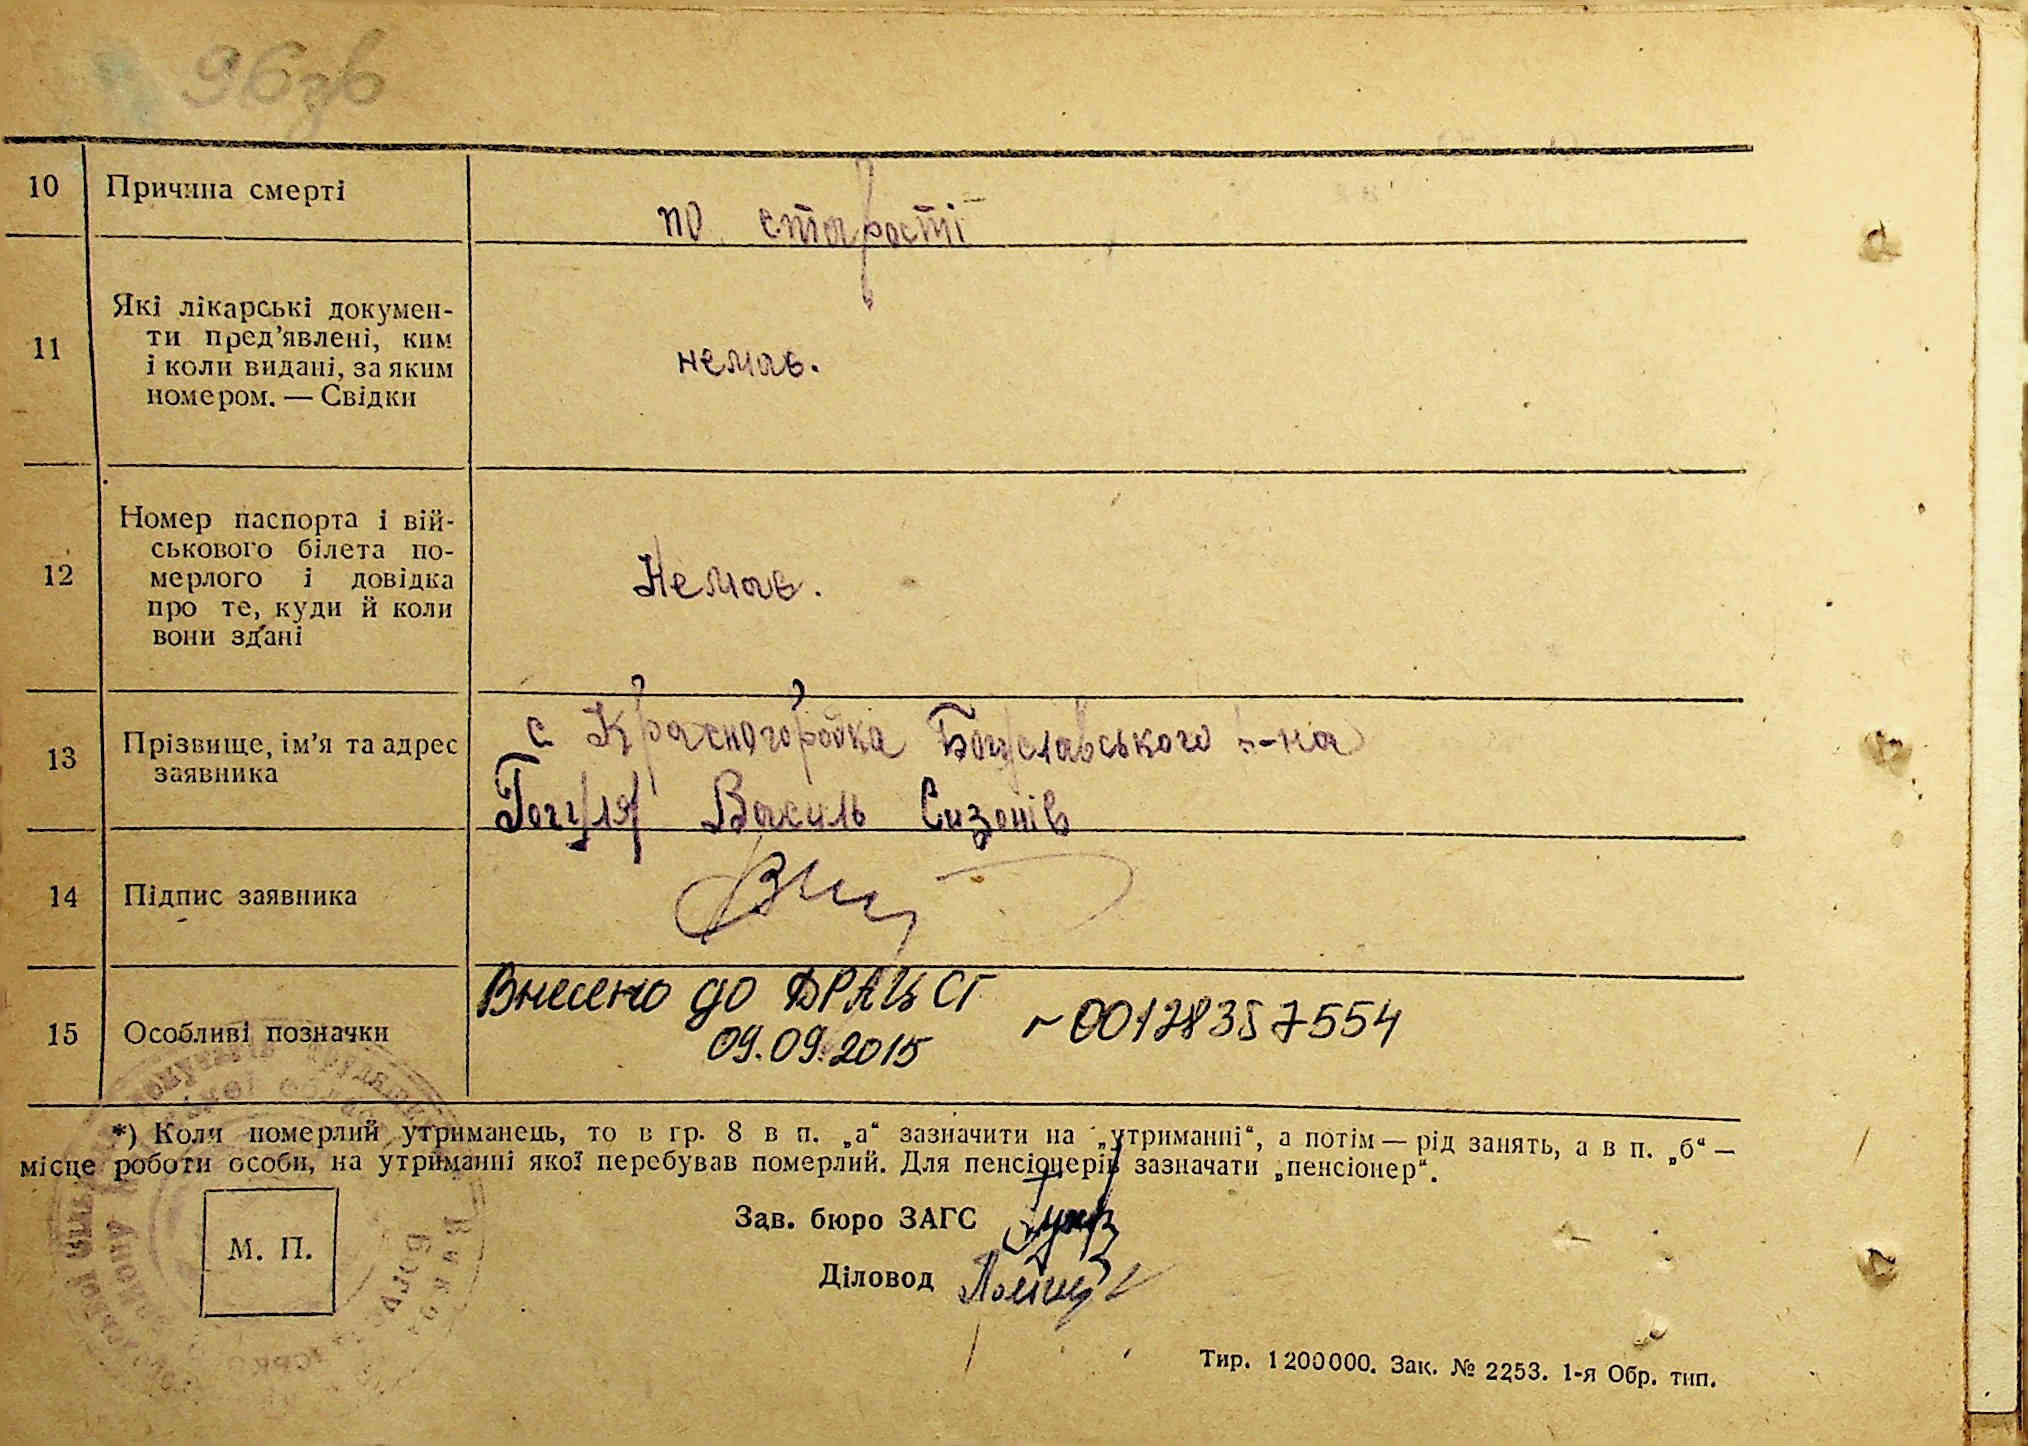 96зв
10 Причина смерті
по старості
11 Які лікарські докумен-
ти пред’явлені, ким
і коли видані, за яким
номером. — Свідки
немав.
12 Номер паспорта і вій-
ськового білета по-
мерлого і довідка
про те, куди й коли
вони здані
Немав.
13 Прізвище, ім’я та адрес
заявника
с. Красногородка Богуславського р-на
Василь Сизонів
14 Підпис заявника
15 Особливі позначки
Внесено до ДРАЦСГ
09.09.2015
00128357554
*) Коли померлий утриманець, то в гр. 8 в п. „а“ зазначити на „утриманні“, а потім — рід занять, а в п. „б“ —
місце роботи особи, на утриманні якої перебував померлий. Для пенсіонерів зазначати „пенсіонер“.
М. П.
Зав. бюро ЗАГС
Діловод
Тир. 1200000. Зак. № 2253. 1-я Обр. тип.